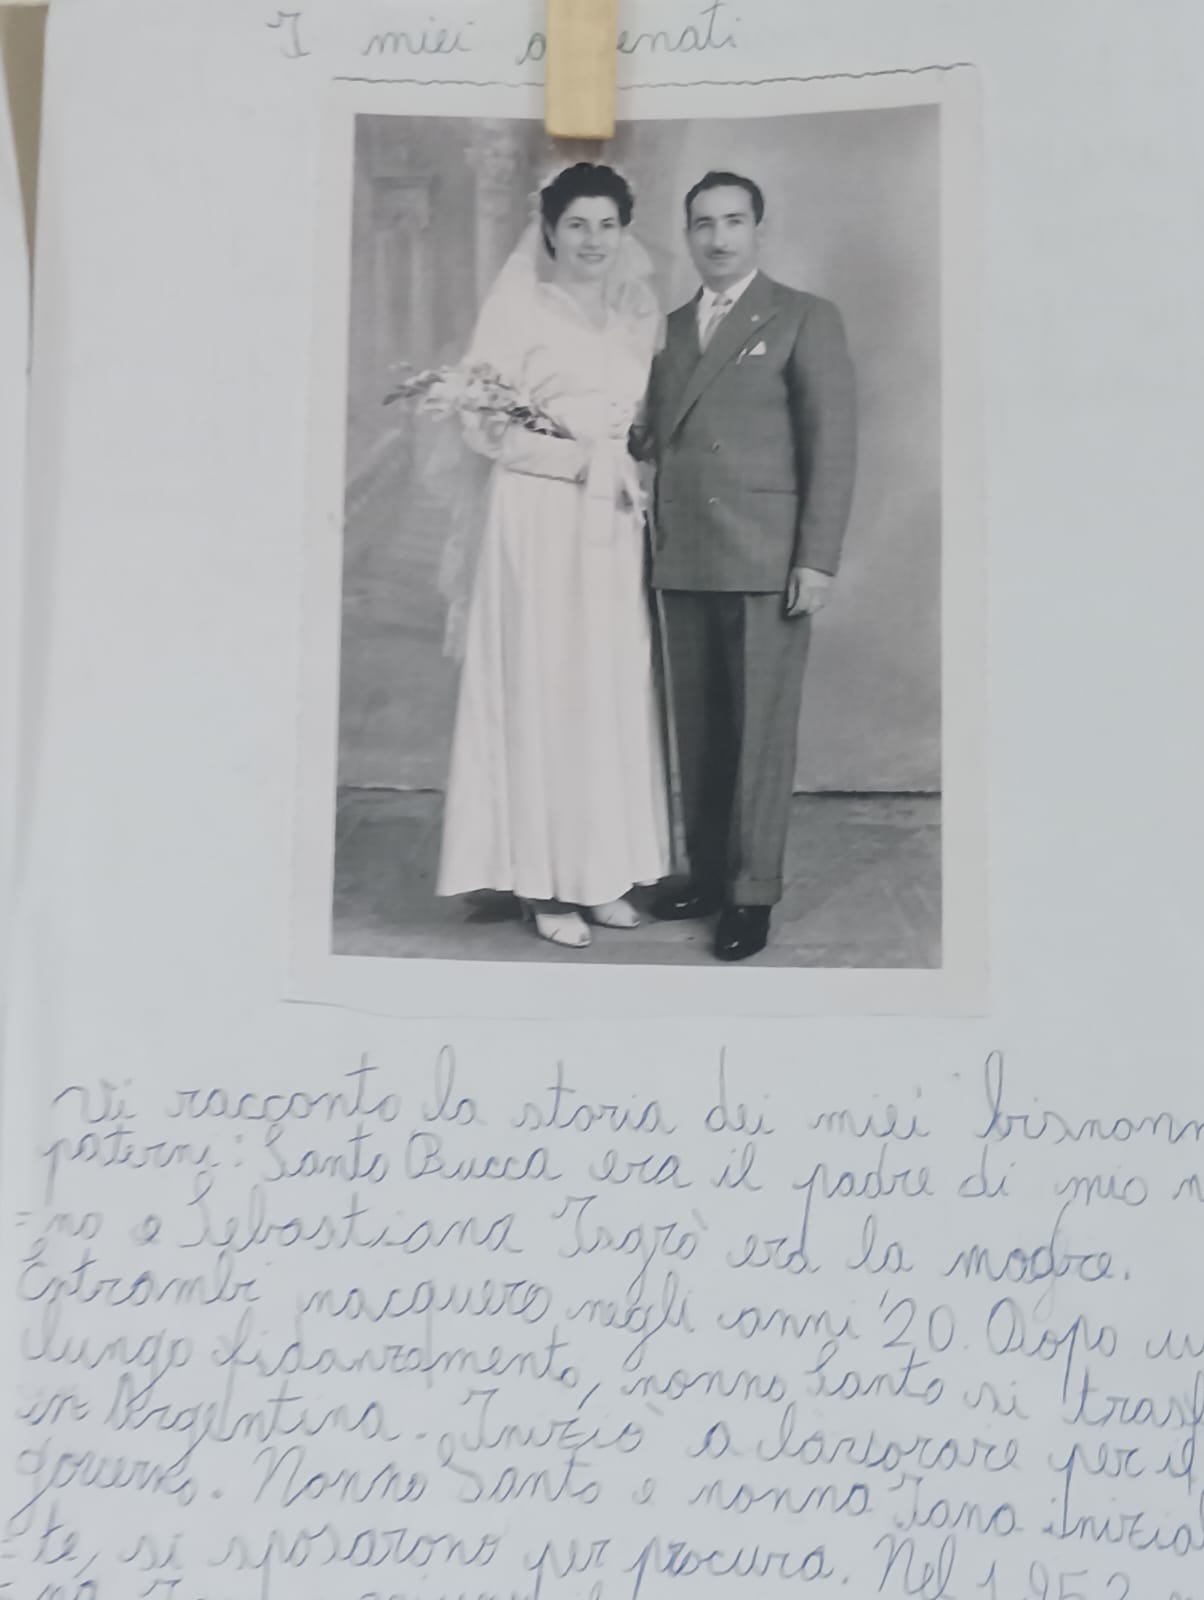 I miei enati
Vi racconto la storia dei miei bisnonn
paterni: Santo Bucca era il padre di mio n
=no e Sebastiana Isgrò era la madre.
Entrambi nacquero negli anni '20. Dopo un
lungo fidanzamento, nonno Santo si trasf
in Argentina. Iniziò a lavorare per il
governo. Nonno Santo e nonna Iana inizial
=te, si sposarono per procura. Nel 1952